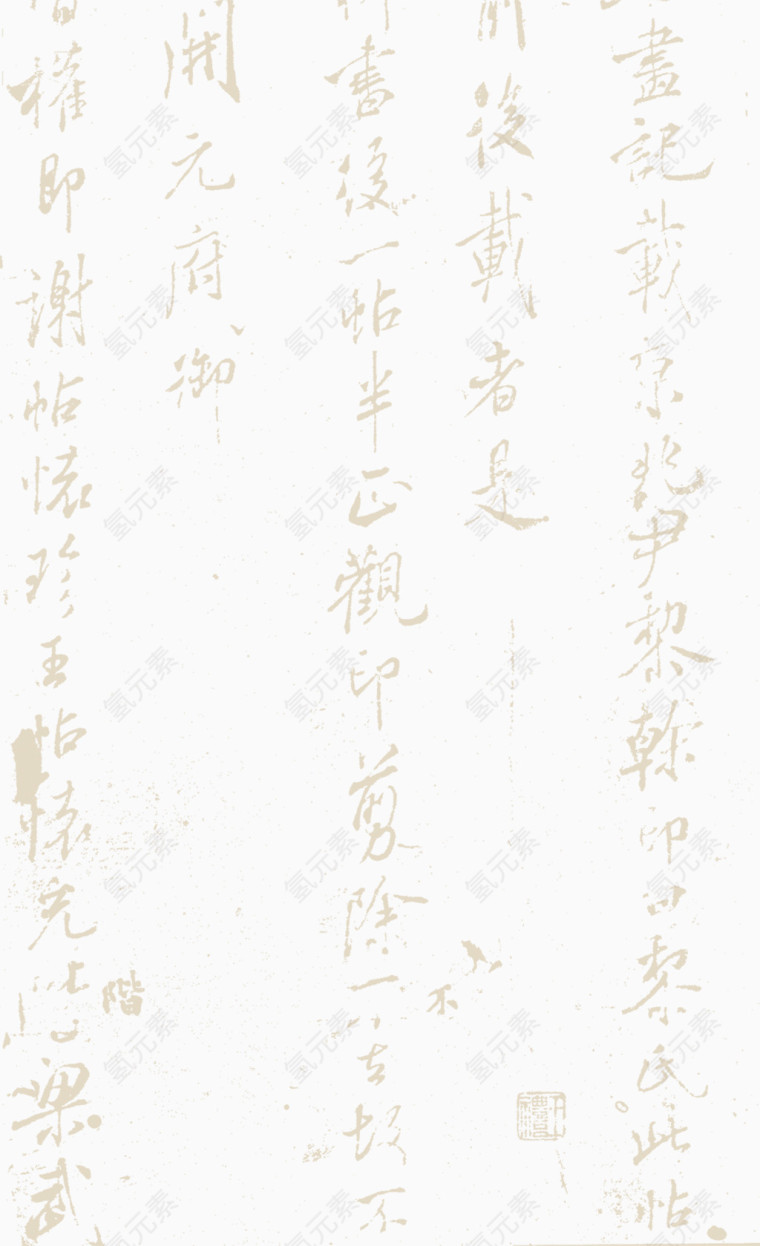 畫記載京兆尹黎幹印曰黎氏此帖
前後載者是
書後一帖半正觀印剪除一
不
開元府御
權即謝帖懷珍王帖懷充
階
梁武
氢元素